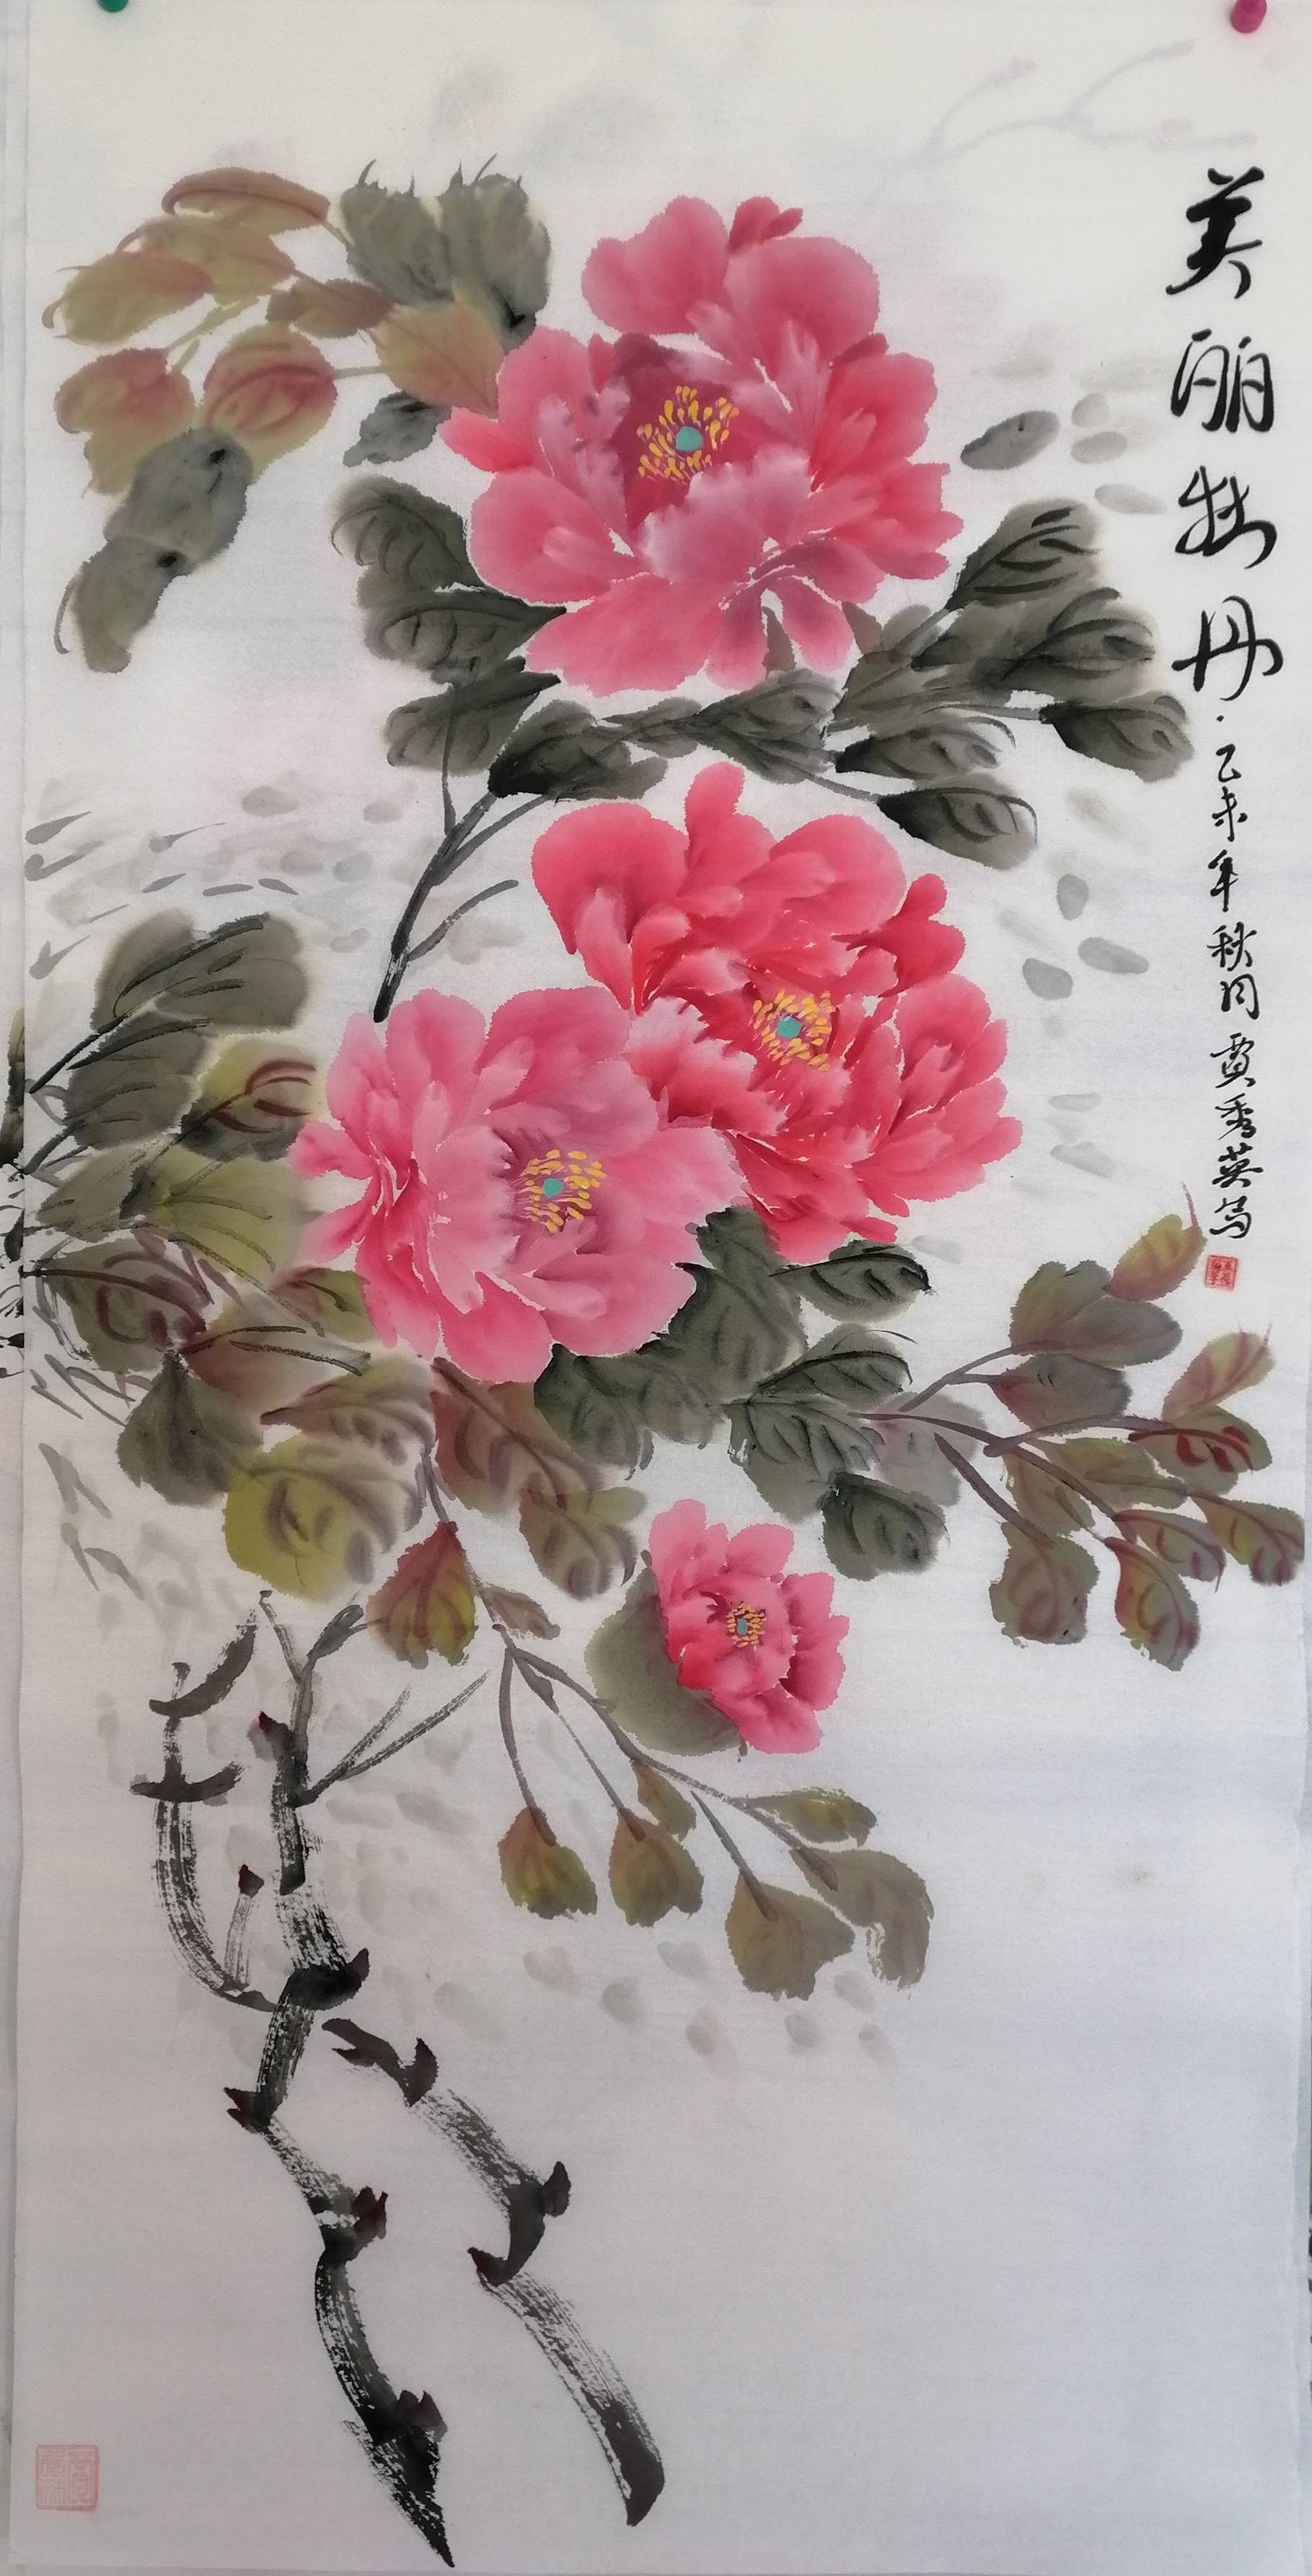 美丽牡丹
乙未年秋月贾秀英写